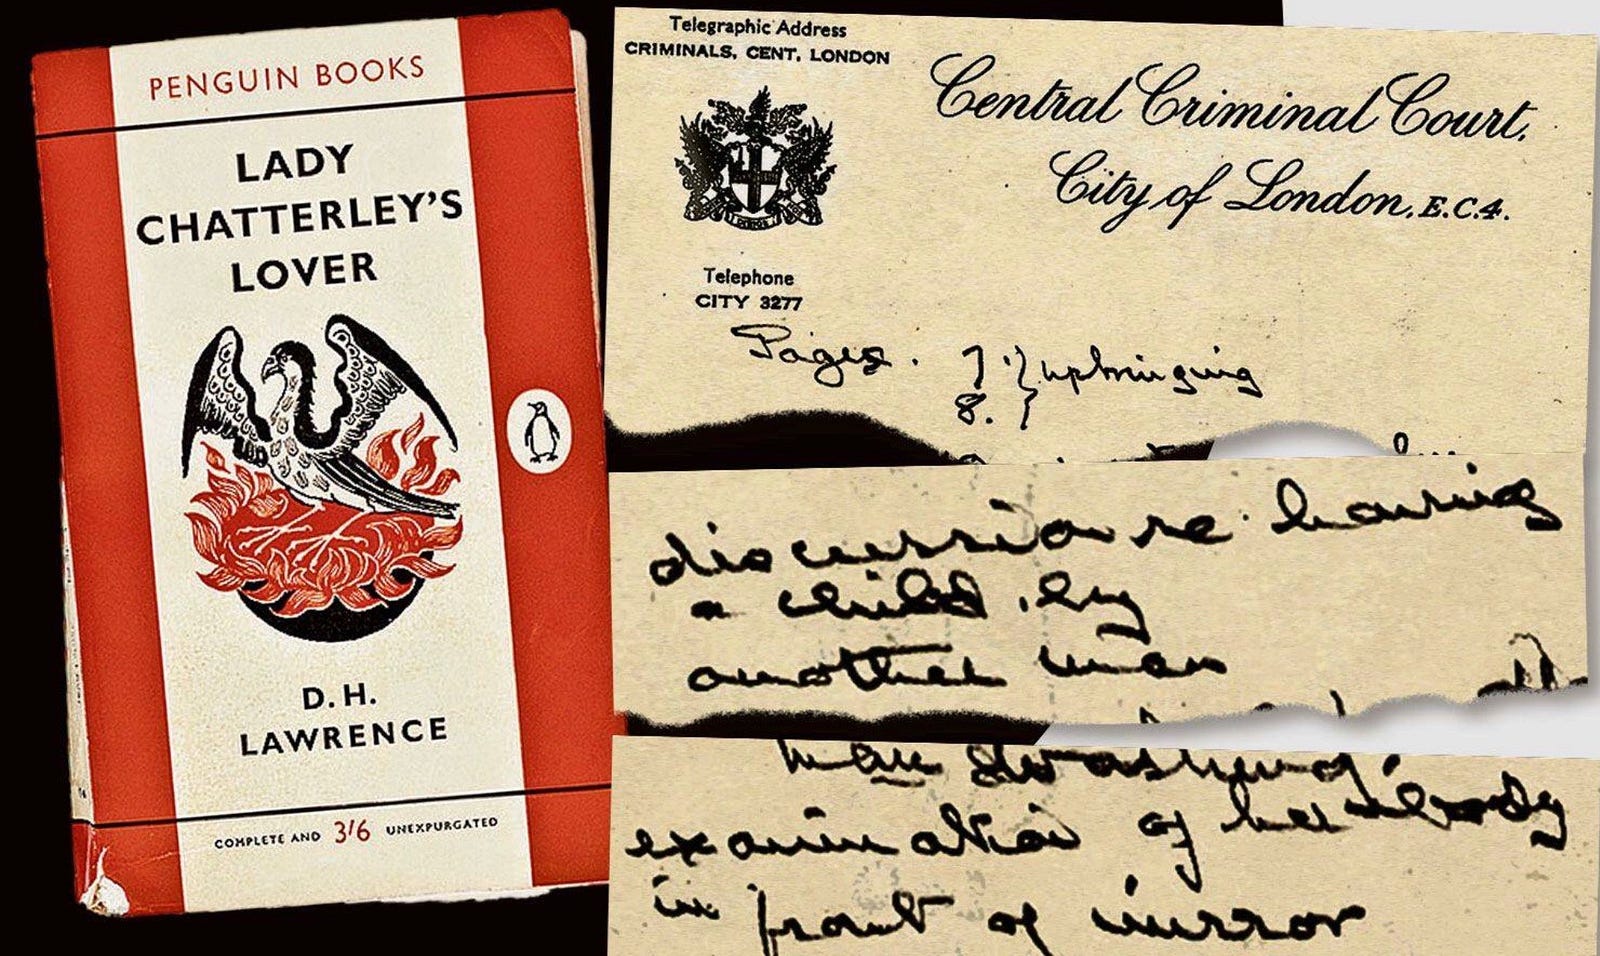 PENGUIN BOOKS
LADY
CHATTERLEY'S
LOVER
D. H.
LAWRENCE
COMPLETE AND 3'6 UNEXPURGATED
Telegraphic Address
CRIMINALS, CENT, LONDON
Central Criminal Court,
City of London, E.C.4.
Telephone
CITY 3277
Pages. 7. } upbringing
8. }
discussion re having
a child by
another man
man washing.
examination of her body
in front of mirror